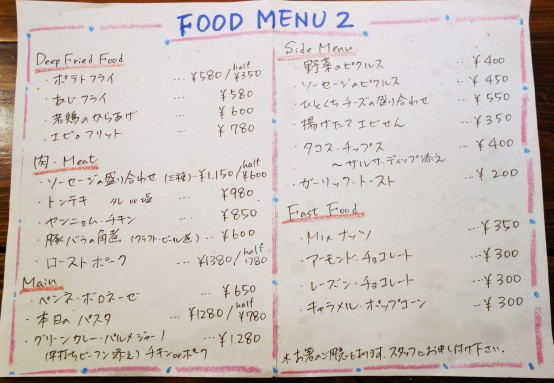 FOOD MENU 2
Deep Fried Food
・ポテトフライ … ¥580/half ¥350
・あじフライ … ¥580
・若鶏のからあげ … ¥600
・エビのフリット … ¥780
肉・Meat
・ソーセージの盛り合わせ(三種)…¥1,150/half ¥600
・トンテキ タレor塩 … ¥980
・ヤンニョム・チキン … ¥850
・豚バラの角煮(クラフトビール煮)… ¥600
・ローストポーク … ¥1380/half ¥780
Main
・ペンネ・ボロネーゼ … ¥650
・本日のパスタ … ¥1280/half ¥780
・グリーンカレー・パルメジャーノ … ¥1.280
(平打ちビーフン添え)チキンorポーク
Side Menu
・野菜のピクルス … ¥400
・ソーセージのピクルス … ¥450
・ひとくちチーズの盛り合わせ … ¥550
・揚げたてエビせん … ¥350
・タコス・チップス … ¥400
〜サルサ・ディップ添え
・ガーリック・トースト … ¥200
Fast Food
・Mix ナッツ … ¥350
・アーモンド・チョコレート … ¥300
・レーズン・チョコレート … ¥300
・キャラメル・ポップコーン … ¥300
※お箸のご用意もあります。スタッフにお申し付け下さい。